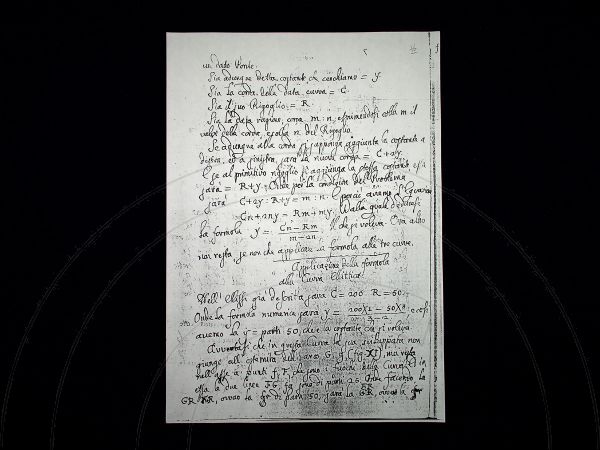 un dato Ponte.
Sia adunque detta costante che cerchiamo = y
Sia la corda della data curva = C.
Sia il suo Rigoglio = R.
Sia la data ragione, come m : n, esprimendosi colla m il
valore della corda, e colla n. del Rigoglio.
Se adunque alla corda si aggiunta la costante a
destra, ed a sinistra, sarà la nuova corda = C + 2y.
E se al primitivo rigoglio si aggiunga la stessa costante, esso
sarà = R + y. Onde per la condizion del Problema
sarà C + 2y : R + y = m : n. E perciò avremo l'Equazione
Cn + 2ny = Rm + my. Dalla quale
la formola y = Cn - Rm / m - 2n. Il che si voleva. Ora altro
non resta, se non che applicare la formola alle tre curve.
Applicazione della formola
alla Curva Ellittica.
Nell' Elissi già descritta sarà C = 200 R = 50.
Onde la formola numerica sarà y = e così
avremo la y = parti 50, che è la costante che si voleva
Avvertasi che in questa Curva la sua sviluppata non
giunge all' estremità dell' arco G, g (fig. XI), ma resta
nell' asse a' punti f, F, che sono i fuochi della Curva
essa a due linee FG, fg sono di parti 25. Onde facendo la
GR, gr, ovvero la di parti 50, sarà la ovvero la